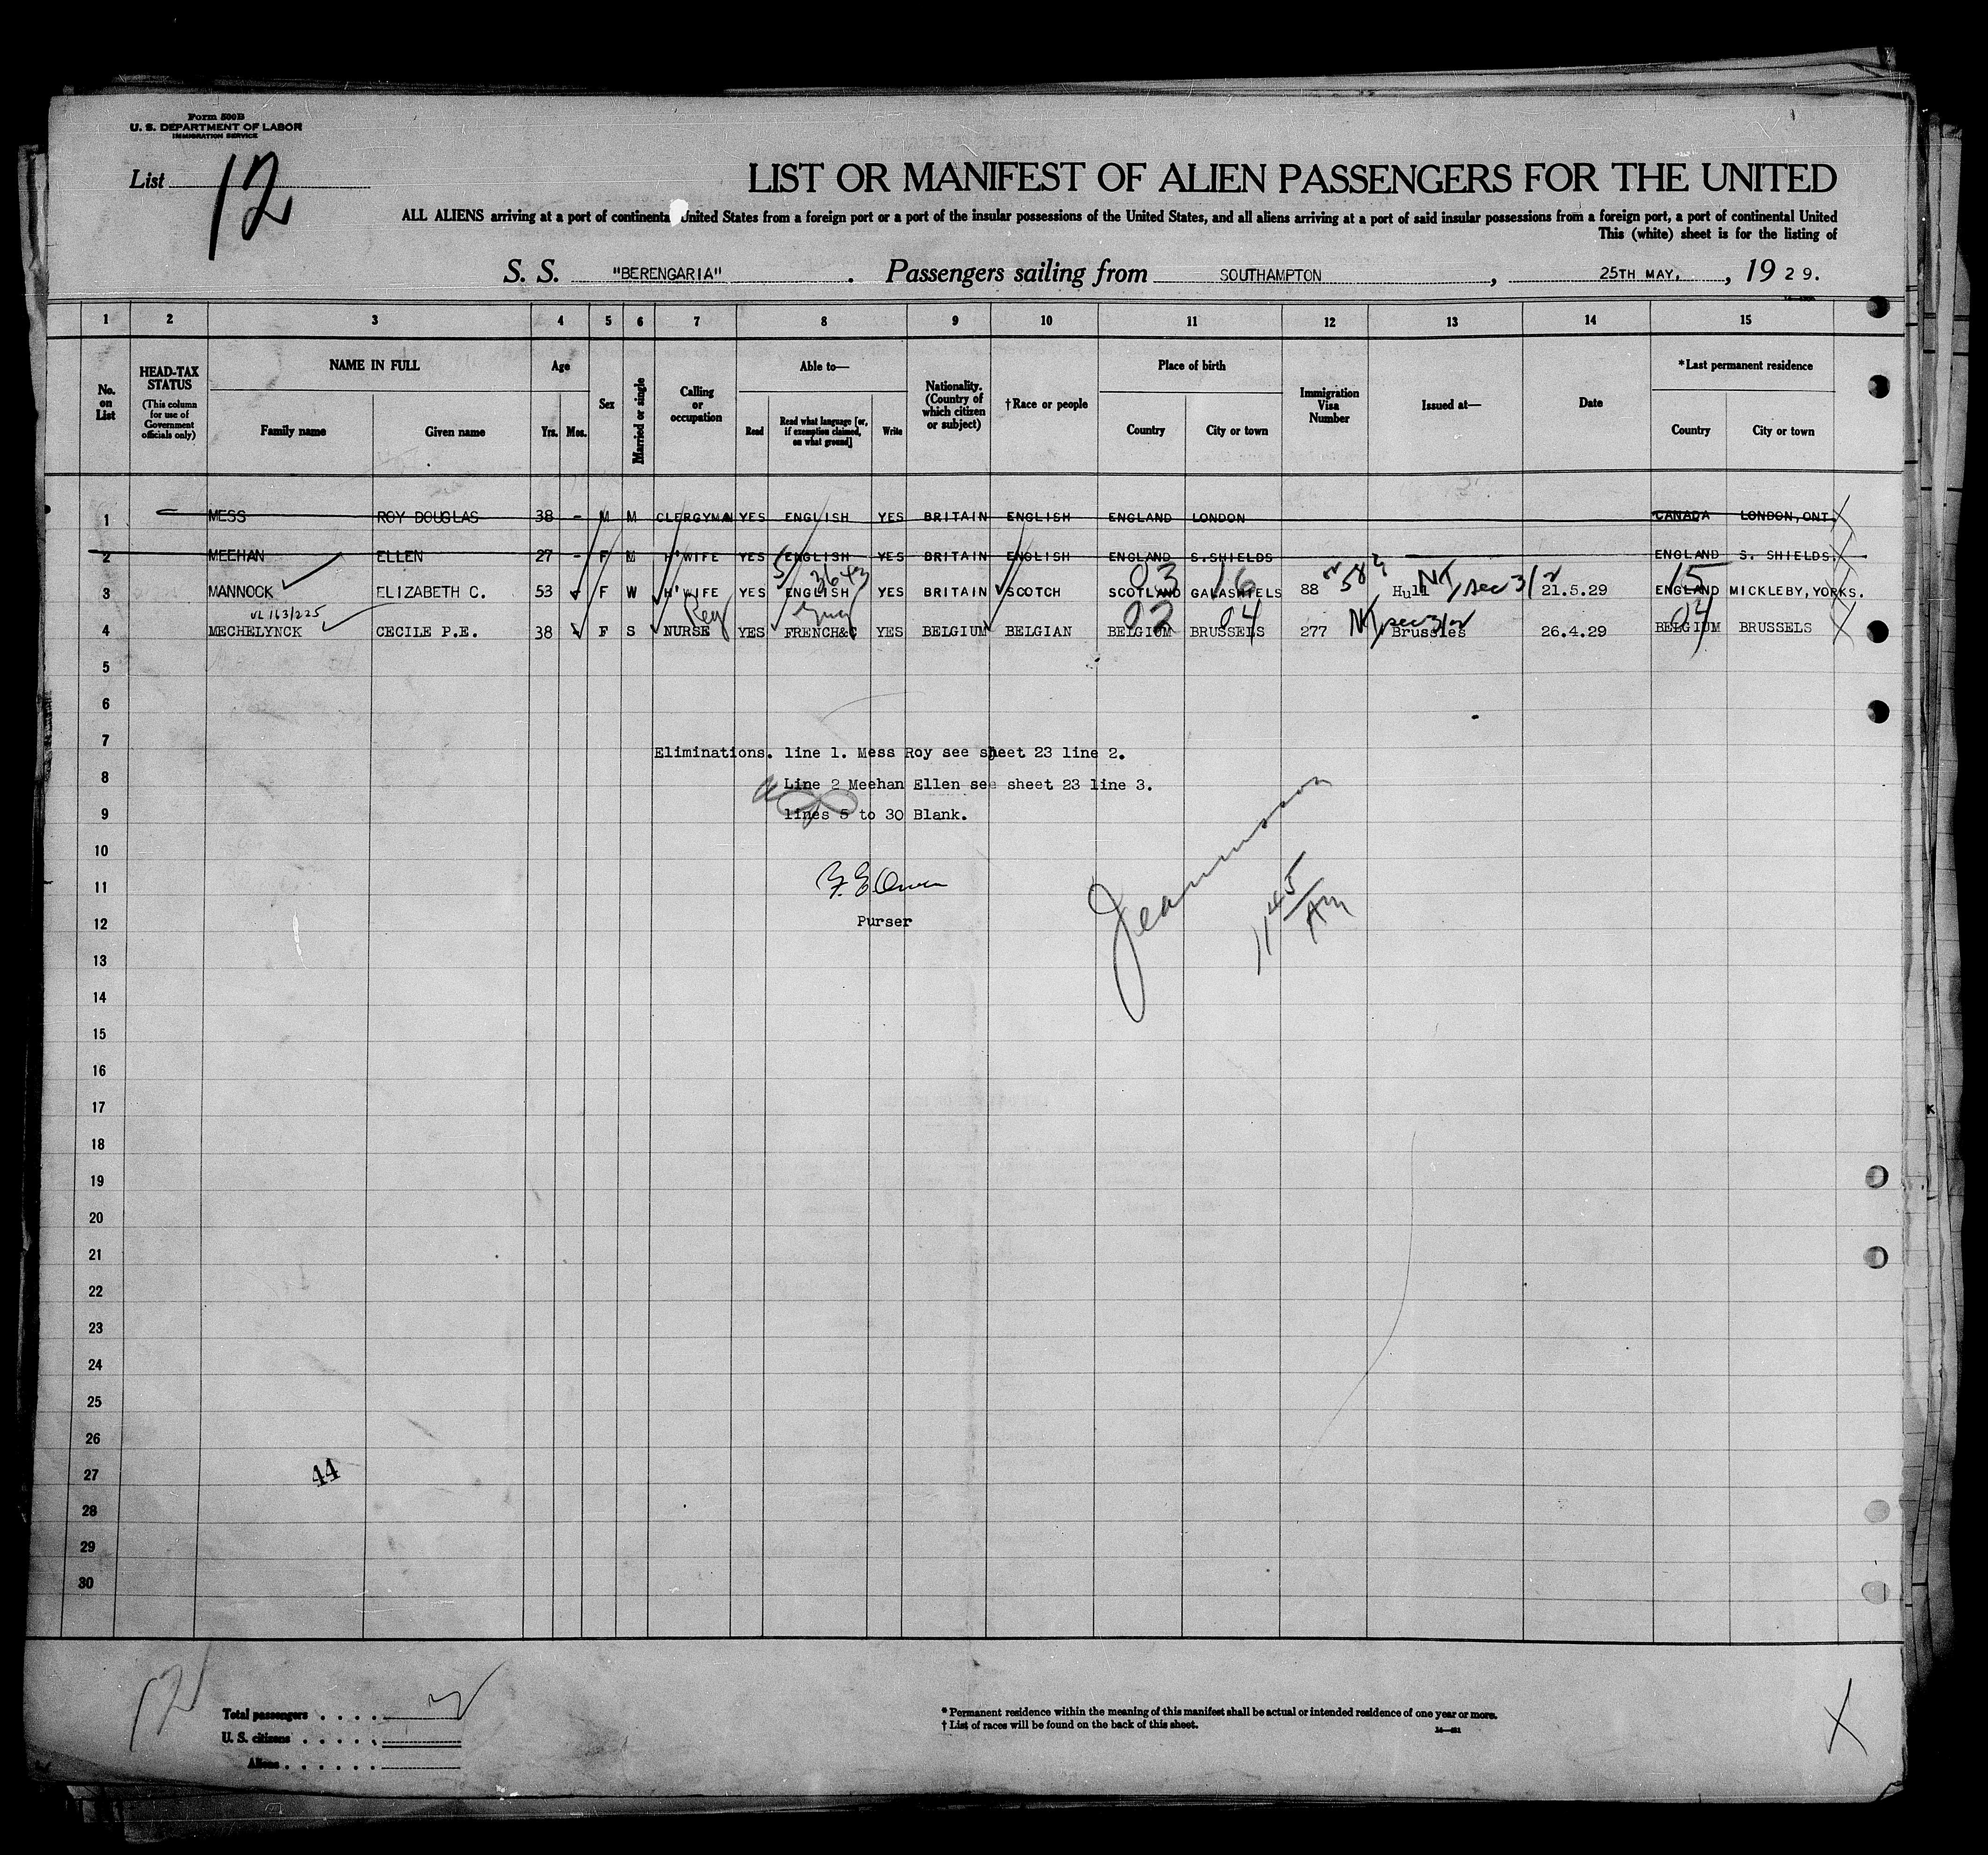 Form 500B
U. S. DEPARTMENT OF LABOR
IMMIGRATION SERVICE
List 12
LIST OR MANIFEST OF ALIEN PASSENGERS FOR THE UNITED
ALL ALIENS arriving at a port of continental United States from a foreign port or a port of the insular possessions of the United States, and all aliens arriving at a port of said insular possessions from a foreign port, a port of continental United
This (white) sheet is for the listing of
S. S. "BERENGARIA". Passengers sailing from SOUTHAMPTON, 25TH MAY, , 1929.
1 2 3 4 5 6 7 8 9 10 11 12 13 14 15
No. on List
HEAD-TAX STATUS (This column for use of Government officials only)
NAME IN FULL
Family name Given name
Age
Yrs. Mos.
Sex
Married or single
Calling or occupation
Able to—
Read Read what language [or, if exemption claimed, on what ground] Write
Nationality. (Country of which citizen or subject)
†Race or people
Place of birth
Country City or town
Immigration Visa Number
Issued at—
Date
*Last permanent residence
Country City or town
1 MESS ROY DOUGLAS 38 - M M CLERGYMAN YES ENGLISH YES BRITAIN ENGLISH ENGLAND LONDON CANADA LONDON, ONT.
2 MEEHAN ELLEN 27 - F M H'WIFE YES ENGLISH YES BRITAIN ENGLISH ENGLAND S.SHIELDS ENGLAND S. SHIELDS.
03 16 15
3 MANNOCK ELIZABETH C. 53 F W H'WIFE YES ENGLISH YES BRITAIN SCOTCH SCOTLAND GALASHIELS 88 Hull 21.5.29 ENGLAND MICKLEBY, YORKS.
VL 163/225 02 04 04
4 MECHELYNCK CECILE P.E. 38 F S NURSE YES FRENCH&C YES BELGIUM BELGIAN BELGIUM BRUSSELS 277 Brussles 26.4.29 BELGIUM BRUSSELS
5
6
7 Eliminations. line 1. Mess Roy see sheet 23 line 2.
8 Line 2 Meehan Ellen see sheet 23 line 3.
9 lines 5 to 30 Blank.
10
11
12 Purser
1145 AM
13
14
15
16
17
18
19
20
21
22
23
24
25
26
27 44
28
29
30
12
Total passengers
U. S. citizens
Aliens
* Permanent residence within the meaning of this manifest shall be actual or intended residence of one year or more.
† List of races will be found on the back of this sheet.
X